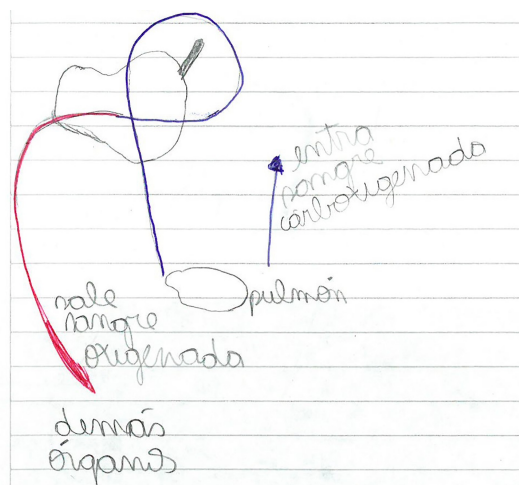 entra
sangre
carboxigenada
pulmón
sale
sangre
oxigenada
demás
órganos